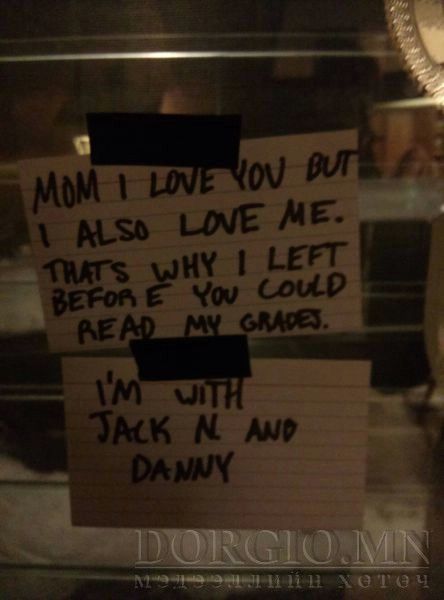 MOM I LOVE YOU BUT
I ALSO LOVE ME.
THATS WHY I LEFT
BEFORE YOU COULD
READ MY GRADES.
I'M WITH
JACK N. AND
DANNY
DORGIO.MN
МЭДЭЭЛЛИЙН ХӨТӨЧ